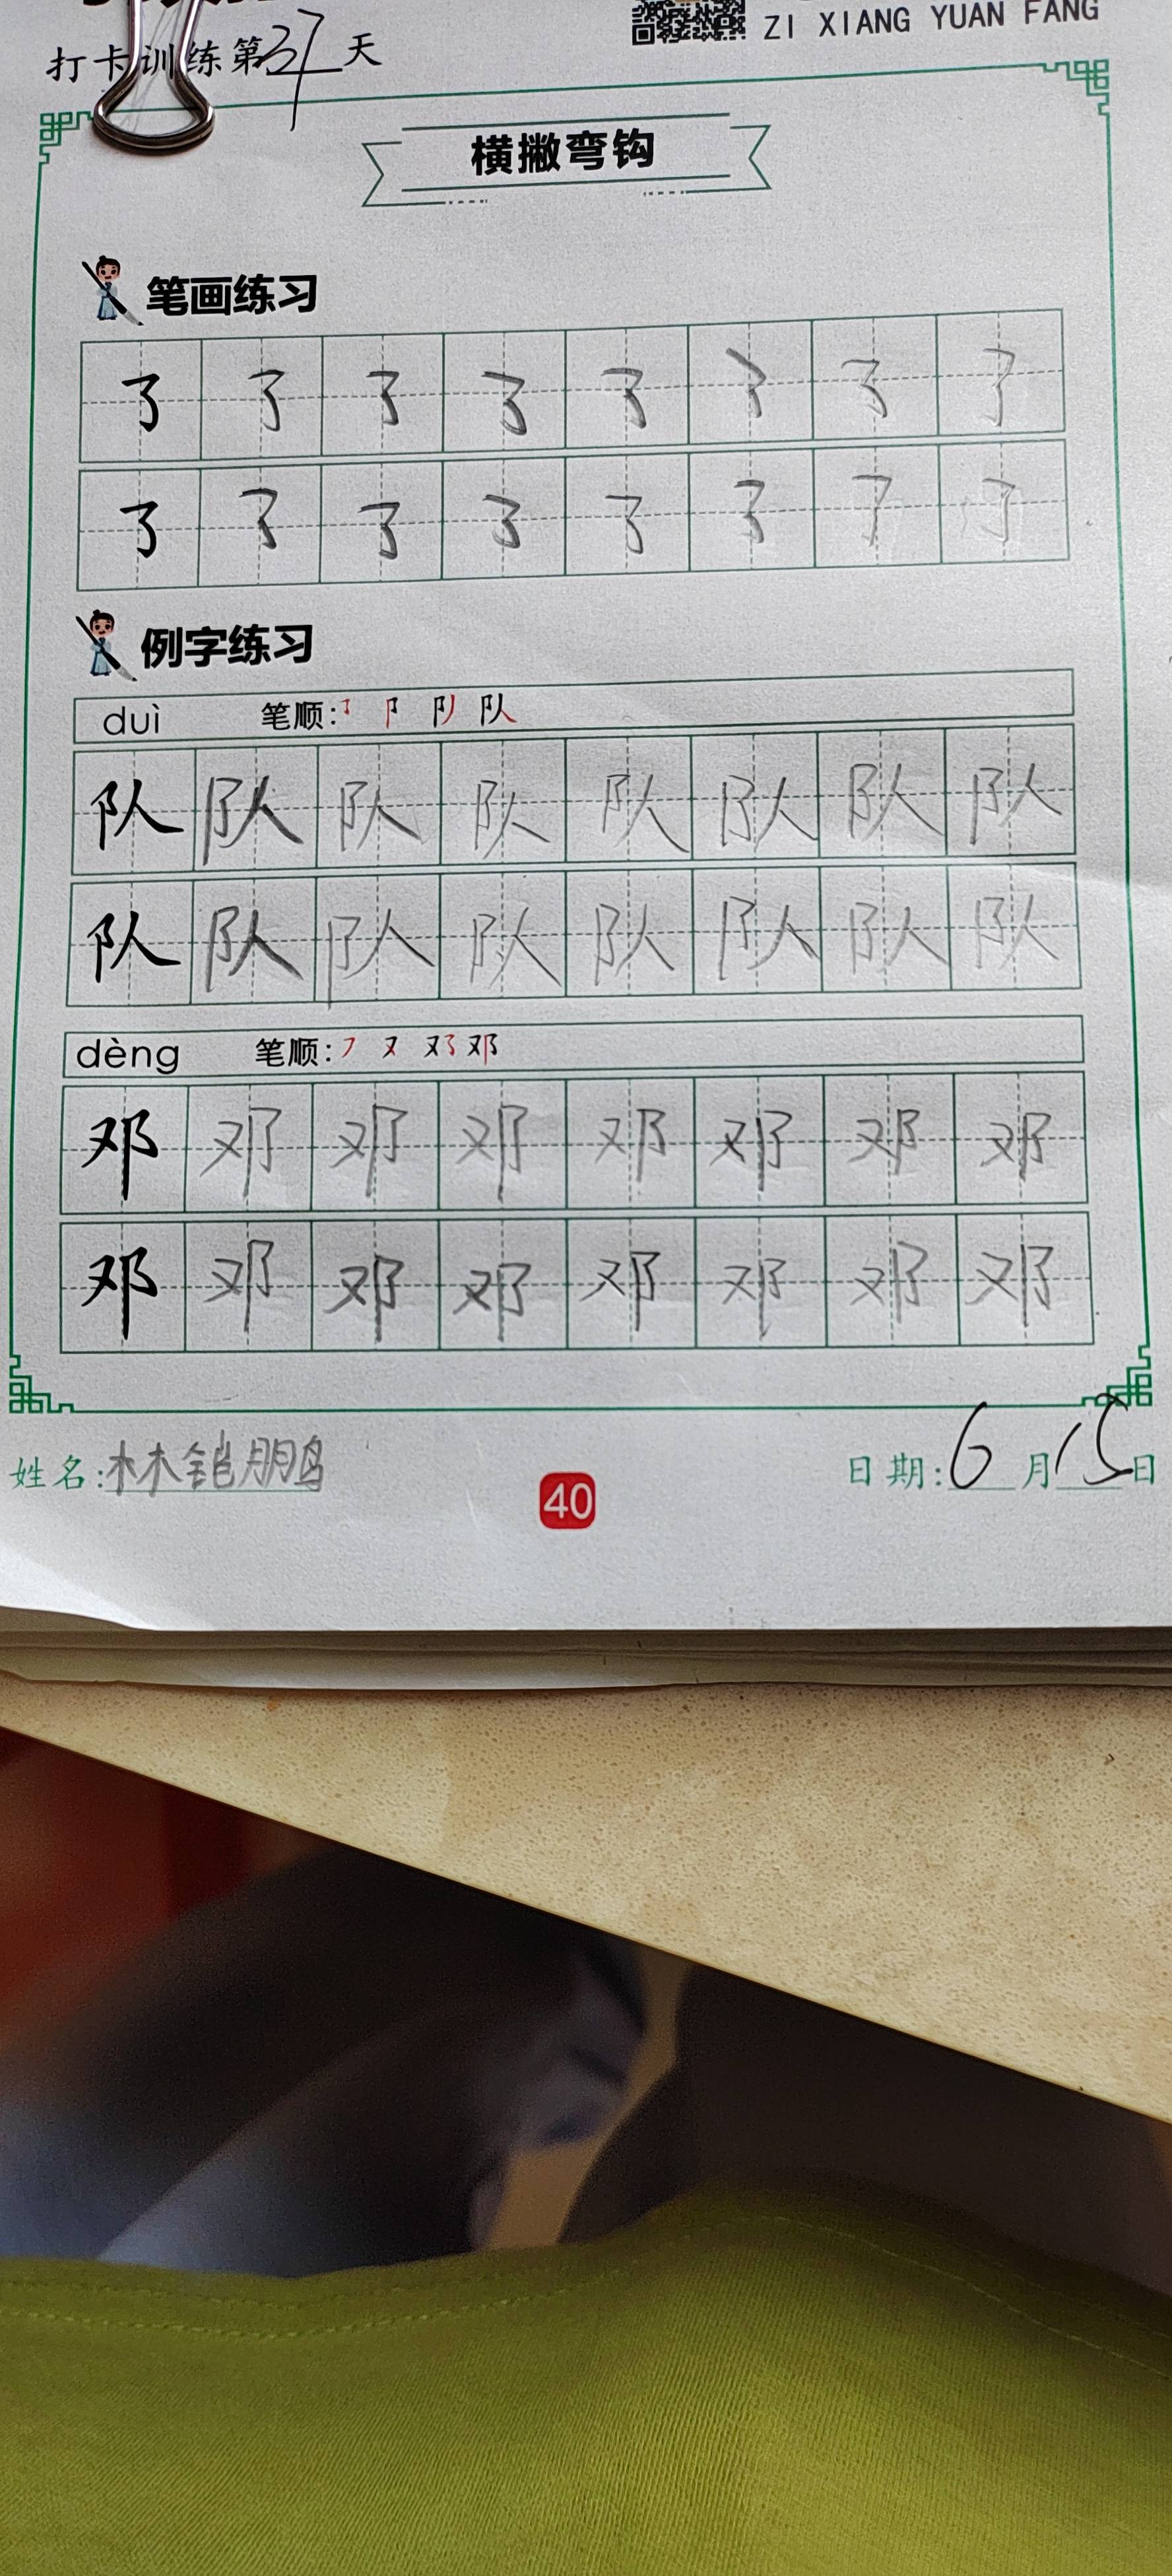 ZI XIANG YUAN FANG
打卡训练第37天
横撇弯钩
笔画练习
例字练习
duì 笔顺:
队 队 队 队 队 队 队 队
队 队 队 队 队 队 队 队
dèng 笔顺:
邓 邓 邓 邓 邓 邓 邓 邓
邓 邓 邓 邓 邓 邓 邓 邓
姓名:林铠鹏 日期:6月15日
40